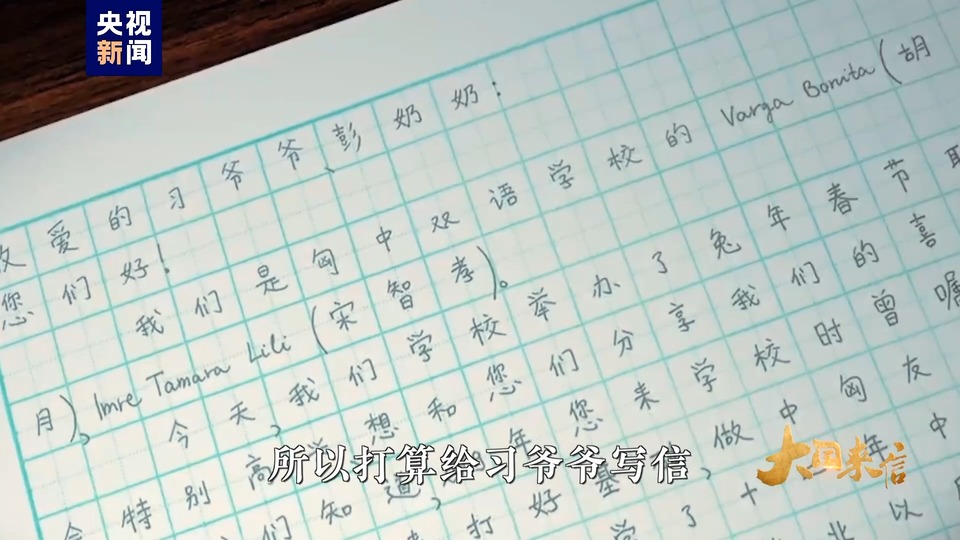 央视
新闻
敬爱的习爷爷、彭奶奶：
您们好！
我们是匈中双语学校的 Varga Bonita（胡
月）、Imre Tamara Lili（宋智孝）。
今天，我们学校举办了兔年春节联
特别高 想和您们分享我们的喜
们知道， 年您来学校时曾嘱
打好基 ，做中匈友
学了十 年中
北以
所以打算给习爷爷写信
大国来信